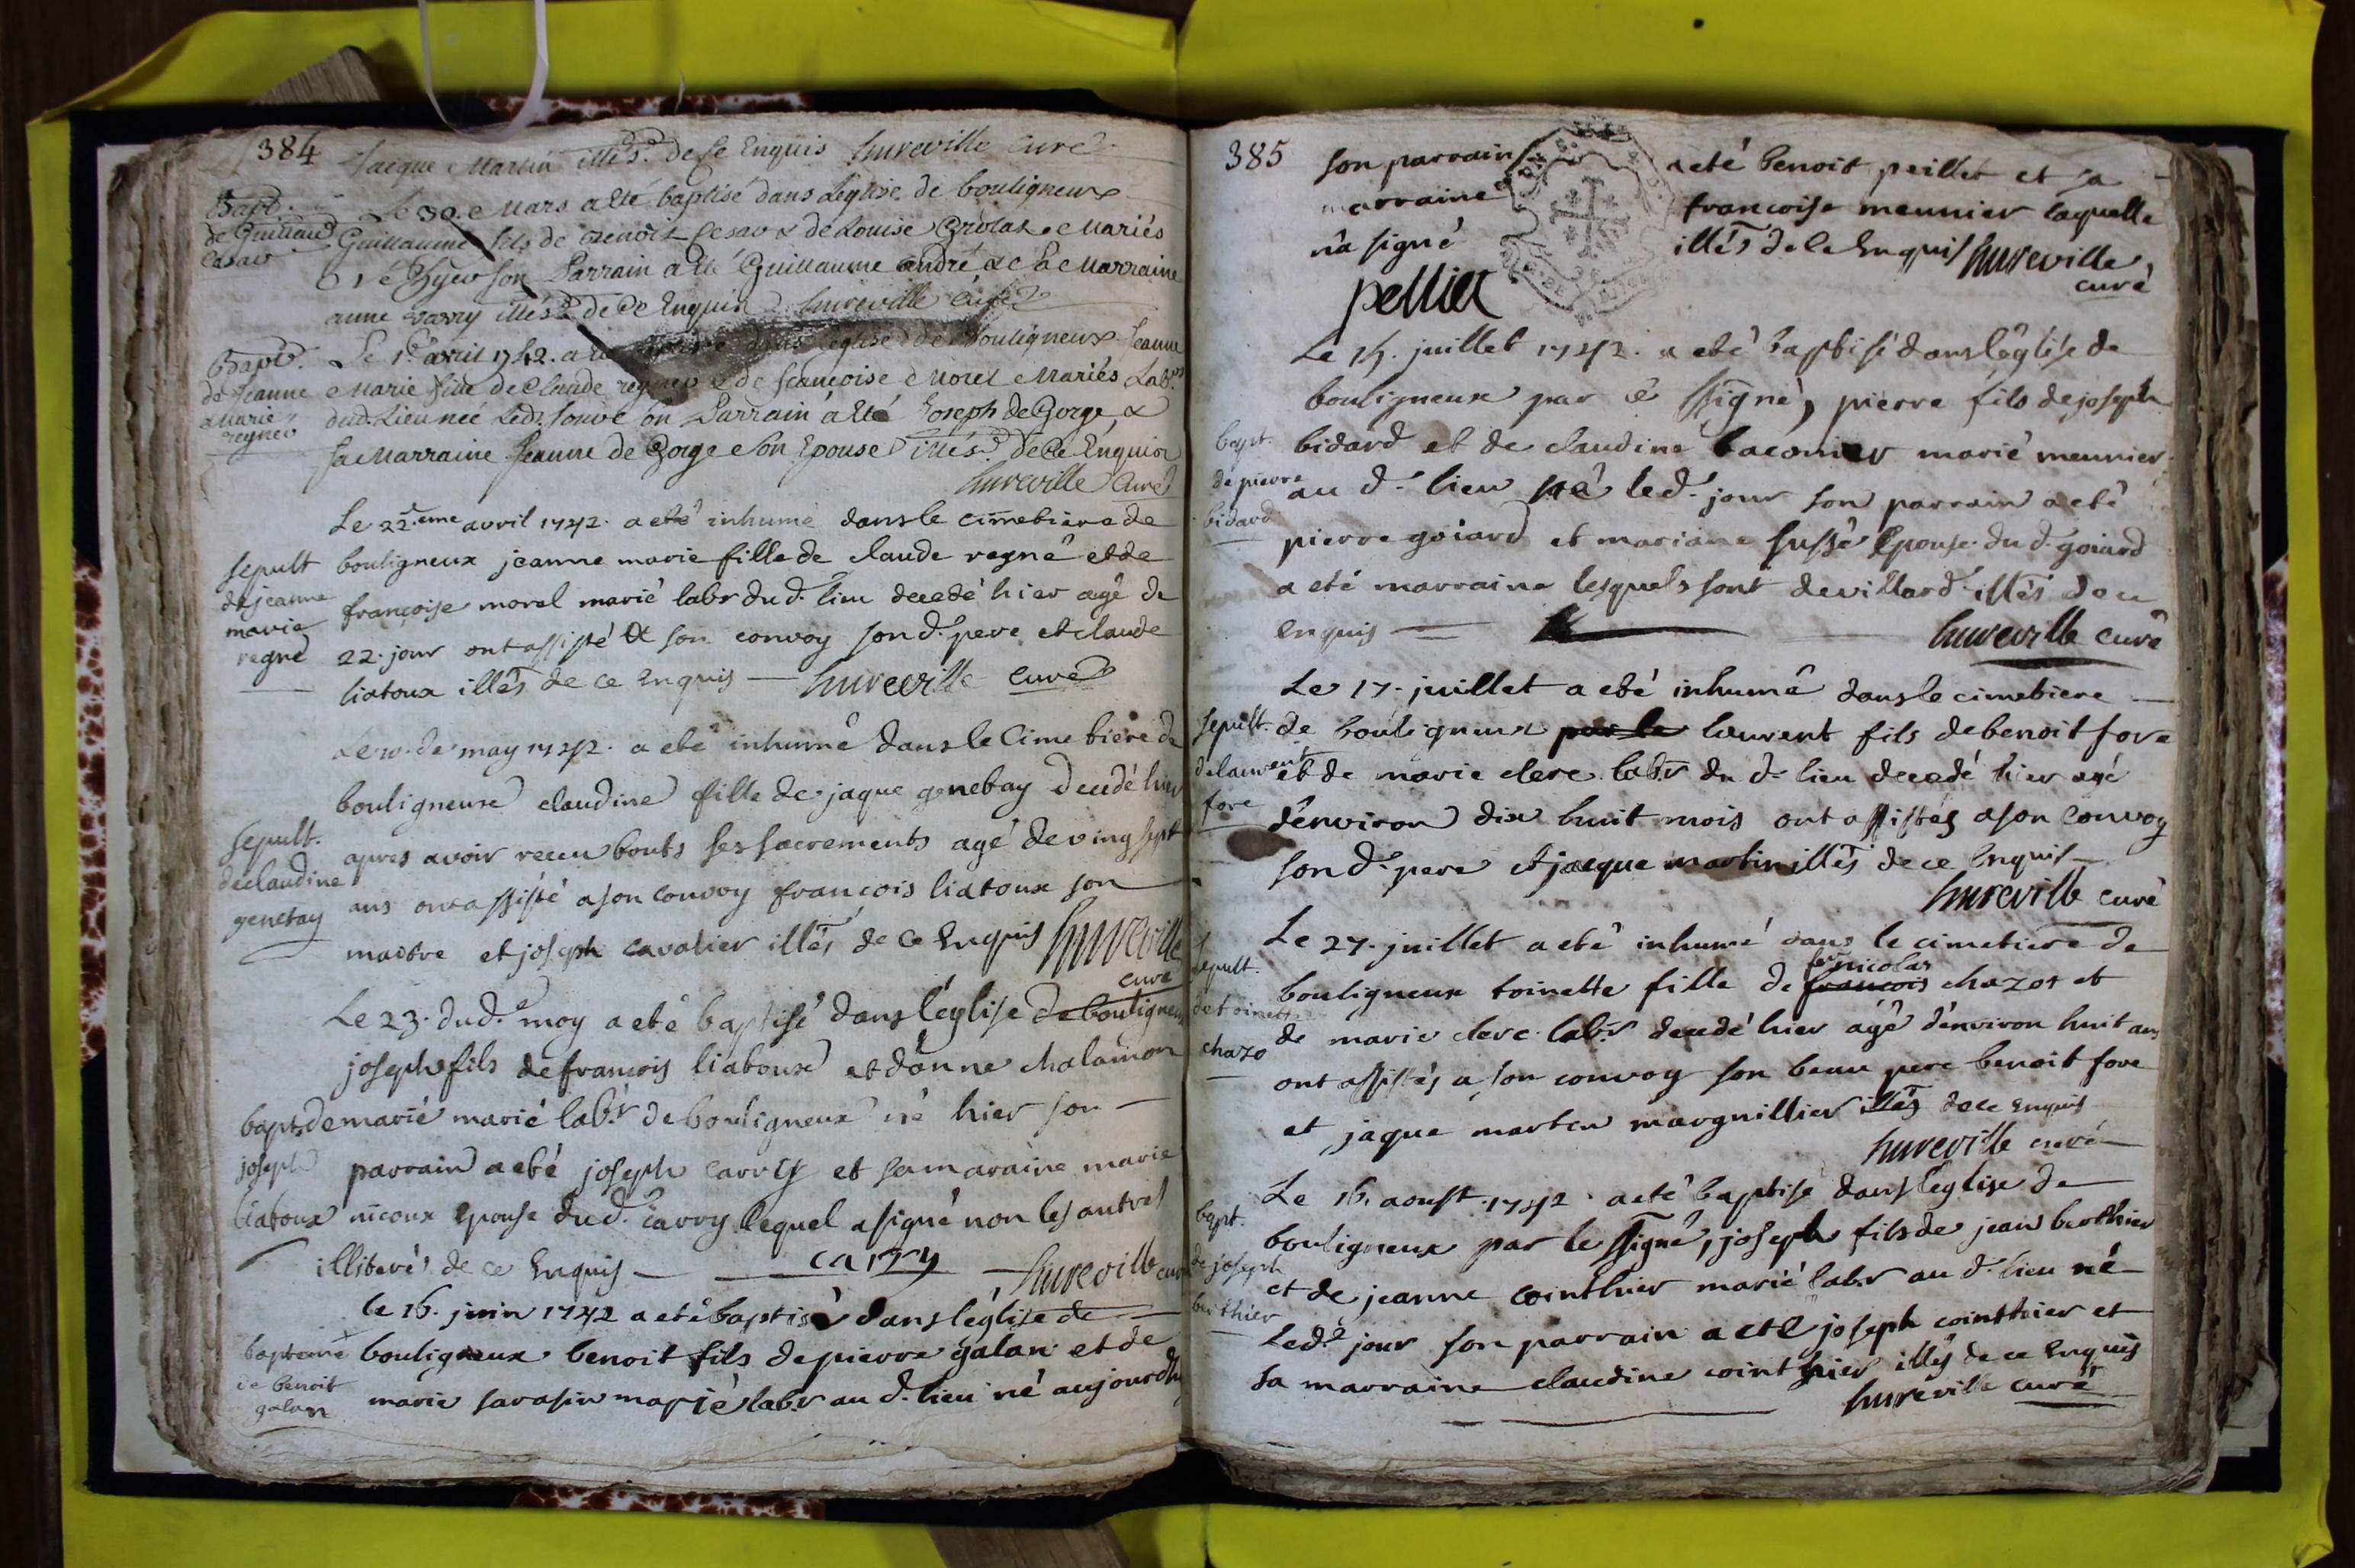 384
Jacque Martin illés. de Ce Enquis hureville Curé
Bapt. de Guillaue Cesar
Le 30e Mars a eté baptisé dans Leglise de bouligneux
Guillaume fils de Benoit Cesar & de Louise Mariés
né hyer son Parrain a eté Guillaume andré & Sa Marraine
anne illés. de Ce Enquis hureville Curé
Bapt. de Jeanne Marie regner
Le 1er avril 1742. a eté dans leglise de Bouligneux Jeanne
Marie fille de Claude & de francoise Morel Mariés Labrs
dud. Lieu née Led. Jour on Parrain a eté Joseph de Gorge &
sa Marraine Jeanne de Gorge Son Epouse illés. de Ce Enquis
hureville Curé
sepult de jeanne marie regné
Le 22.eme avril 1742. a eté inhumé dans le cimetiere de
bouligneux jeanne marie fille de claude regné et de
françoise morel marié labr du d. lieu decedé hier agé de
22. jour ont assisté a son convoy son d. pere et claude
liatoux illés de ce Enquis — hureville curé
sepult. de claudine genetay
Le 10. de may 1742. a eté inhumé dans le Cimetiere de
bouligneux claudine fille de jaque genetay decedé hier
apres avoir receu touts ses sacrements agé de ving sept
ans ont assisté a son convoy francois liatoux son
maitre et joseph cavalier illés de ce Enquis hureville
curé
bapt de joseph liatoux
Le 23. du d. may a eté baptisé dans léglise de bouligneux
joseph fils de francois liatoux et danne chalamon
marié marié labr de bouligneux né hier son —
parrain a eté joseph carry et sa maraine marie
nicoux Epouse du d. carry lequel a signé non les autres
illiterés de ce Enquis — carry — hureville curé
bapteme de benoit galan
le 16. juin 1742 a eté baptisé dans léglise de —
bouligneux benoit fils de pierre galan et de
marie sarasin marié labr au d. lieu né aujourdhuy
385
son parrain a eté benoit peillet et sa
marraine francoise meunier laquelle
n'a signé illés de ce Enquis hureville
curé
pelliet
bapt. de pierre bidard
Le 14. juillet 1742. a eté baptisé dans léglise de
bouligneux par le ssigné, pierre fils de joseph
bidard et de claudine baconier marié meunier
au d. lieu né le d. jour son parrain a eté
pierre goiard et mariane fussé Epouse du d. goiard
a eté marraine lesquels sont de villard illés de ce
Enquis — hureville curé
sepult. de laurent fore
Le 17. juillet a eté inhumé dans le cimetiere —
de bouligneux par le laurent fils de benoit fore
et de marie clerc labr du d. lieu decedé hier agé
d'environ dix huit mois ont assistés a son convoy
son d. pere et jacque martin illés de ce Enquis —
hureville curé
sepult. de toinette chazo
Le 27. juillet a eté inhumé dans le cimetiere de
bouligneux toinette fille de francois nicolas chazot et
de marie clerc labr decedé hier agé d'environ huit ans
ont assistés a son convoy son beau pere benoit fore
et jaque marten marguillier illés de ce Enquis
hureville curé
bapt. de joseph berthier
Le 16. aoust. 1742. a eté baptisé dans léglise de
bouligneux par le ssigné, joseph fils de jean berthier
et de jeanne cointhier marié labr au d. lieu né
led. jour son parrain a eté joseph cointhier et
sa marraine claudine cointhier illés de ce Enquis
hureville curé